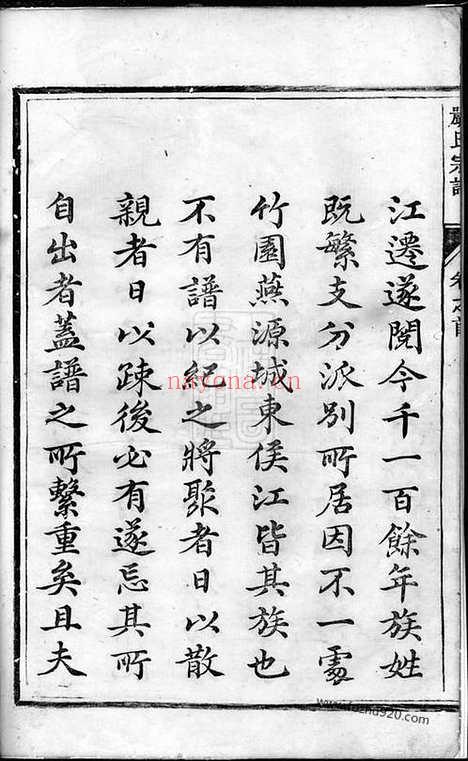 嚴氏宗譜
卷之首
江遷遂閱今千一百餘年族姓
既繁支分派別所居因不一處
竹園燕源城東侯江皆其族也
不有譜以紀之將聚者日以散
親者日以疎後必有遂忘其所
自出者蓋譜之所繫重矣且夫
nayona.cn